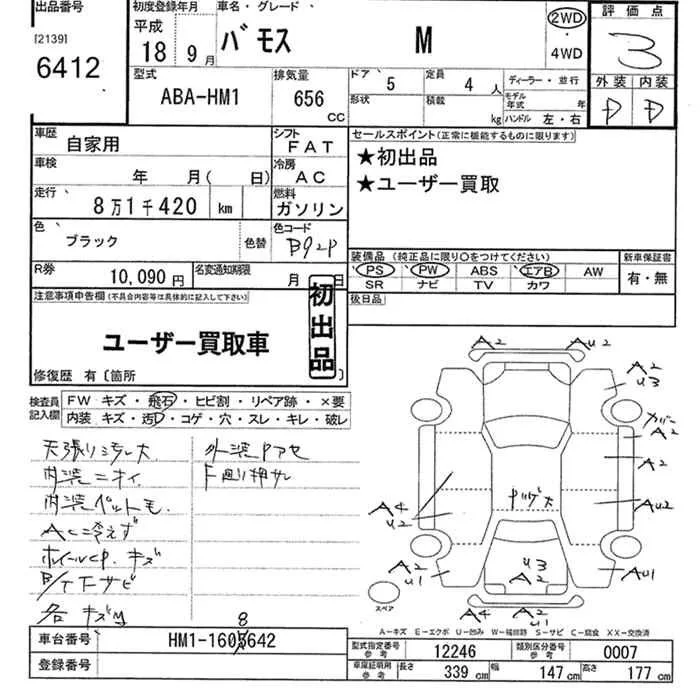 出品番号
[2139]
6412
初度登録年月
平成
18 9月
車名・グレード
バモス M
2WD
・
4WD
評価点
3
外装 内装
D D
型式
ABA-HM1
排気量
656
CC
ドア 5
定員 4 人
形状
積載 kg
ディーラー・並行
モデル年式 年
ハンドル 左・右
車歴 自家用
シフト FAT
車検 年 月( 日)
冷房 AC
走行 8万1千420 km
燃料 ガソリン
色 ブラック 色替
色コード B92P
R券 10,090円
名変通知期限 月 日
セールスポイント(正常に機能するものに限ります)
★初出品
★ユーザー買取
装備品 (純正品に限り○をつけてください)
PS PW ABS エアB AW
SR ナビ TV カワ
新車保証書
有・無
後日品
注意事項申告欄(不具合内容等は具体的に記入して下さい)
ユーザー買取車
初出品
修復歴 有〔箇所 〕
検査員記入欄
FW キズ・飛石・ヒビ割・リペア跡・×要
内装 キズ・汚D・コゲ・穴・スレ・キレ・破レ
天張り汚レ大
内装ニオイ
内装ペット毛
AC冷えず
ホイールCP.キズ
各キズM
外装Pアセ
下廻り押サレ
A2 AU2
A2
U3
カバー
A2
A2
A4
U2
AU2
A2
U1
U3
A2
AU1
A4 A2
U1
スペア
A-キズ E-エクボ U-凹み W-補修跡 S-サビ C-腐食 XX-交換済
車台番号 HM1-1605642
8
登録番号
型式指定番号 参考 12246
類別区分番号 参考 0007
車庫証明用 参考 長さ 339cm 幅 147cm 高さ 177cm